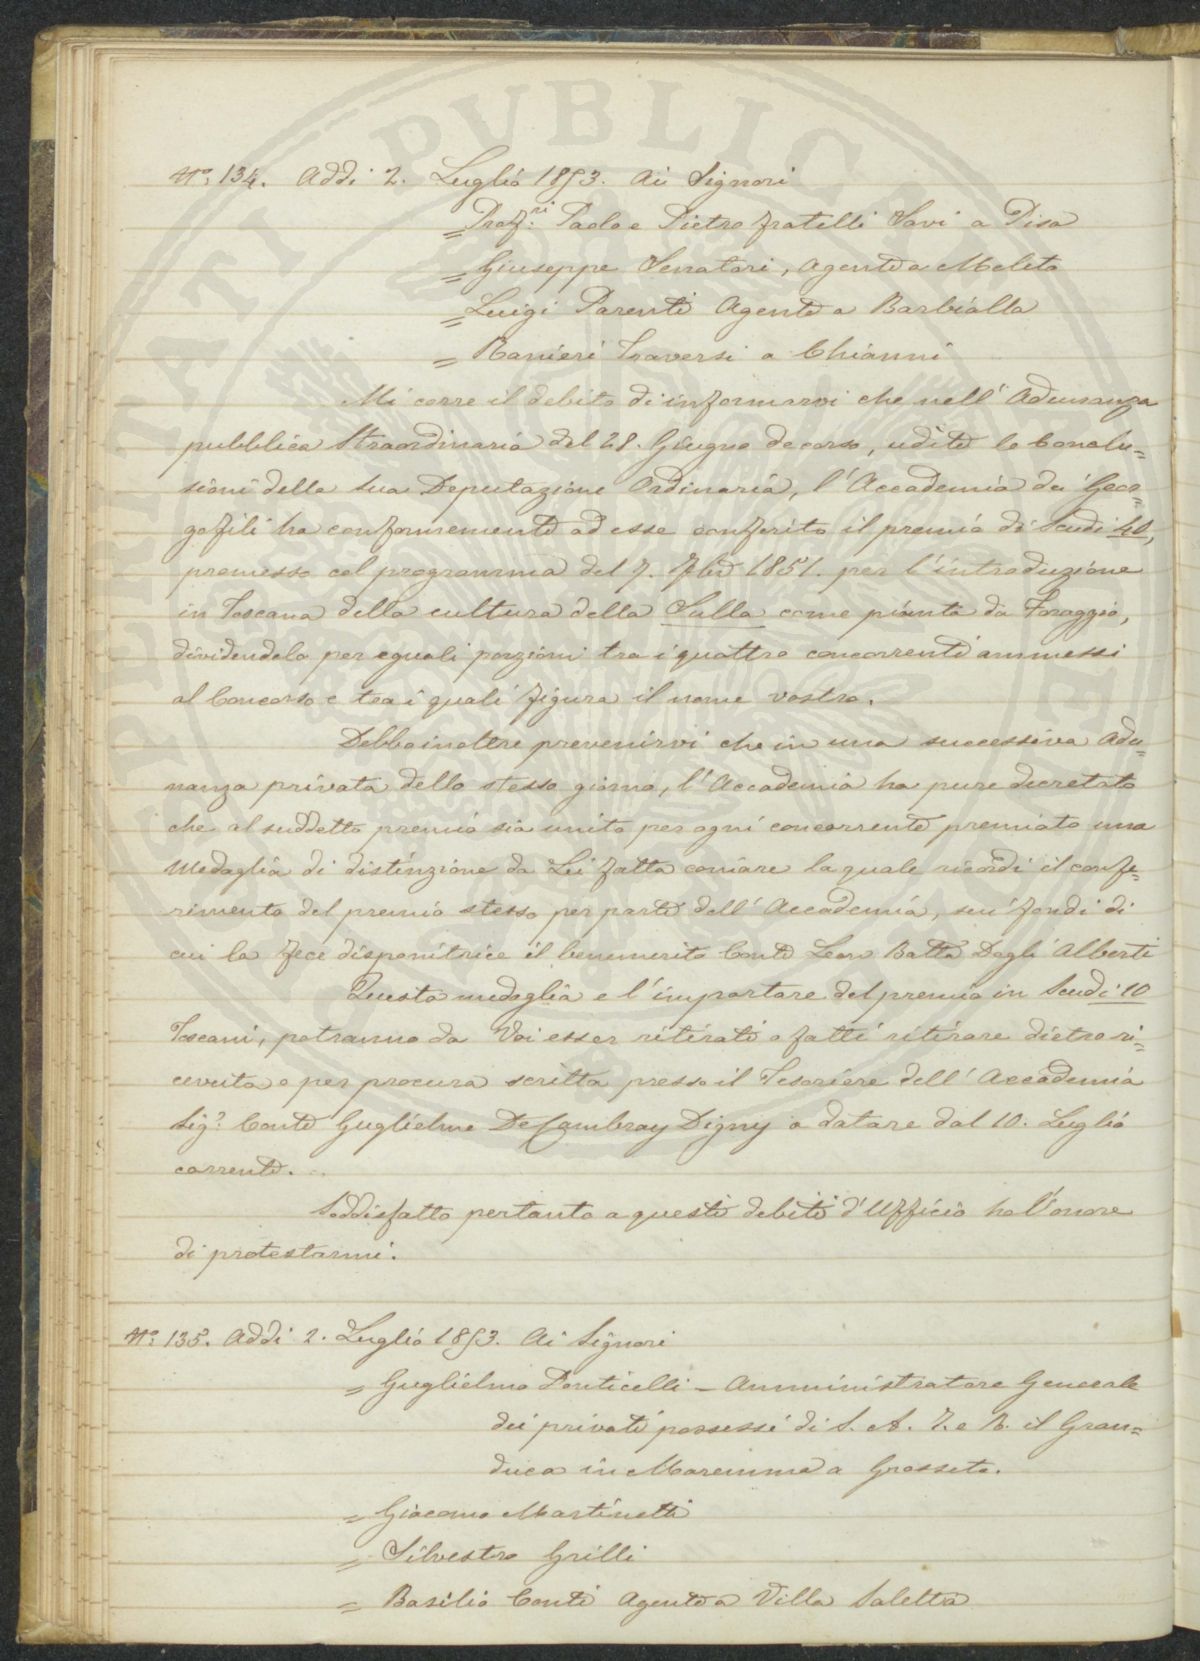 N.º 134. Addi 2. Luglio 1853. Ai Signori
= Prof.ri Paolo e Pietro fratelli Savi a Pisa
= Giuseppe Senatori, Agente a Meleto
= Luigi Parenti Agente a Barbialla
= Ranieri Traversi a Chianni
Mi corre il debito di informarvi che nell'Adunanza
pubblica Straordinaria del 28. Giugno decorso, udite le Conclu=
sioni della sua Deputazione Ordinaria, l'Accademia dei Geor=
gofili ha conformemente ad esse conferito il premio di Scudi 40,
promesso col programma del 7. 7bre 1851. per l'introduzione
in Toscana della cultura della Sulla come pianta da Foraggio,
dividendolo per eguali porzioni tra i quattro concorrenti ammessi
al Concorso e tra i quali figura il nome vostro.
Debbo inoltre prevenirvi che in una successiva Adu=
nanza privata dello stesso giorno, l'Accademia ha pure decretato
che al suddetto premio sia unita per ogni concorrente premiato una
Medaglia di distinzione da Lei fatta coniare la quale ricordi il confe=
rimento del premio stesso per parte dell'Accademia, sui fondi di
cui la fece disponitrice il benemerito Conte Leon Batta Degli Alberti
Questa medaglia e l'importare del premio in Scudi 10
Toscani, potranno da Voi esser ritirati o fatti ritirare dietro ri=
cevuta o per procura scritta presso il Tesoriere dell'Accademia
Sig.r Conte Guglielmo De Cambray Digny a datare dal 10. Luglio
corrente.
Soddisfatto pertanto a questi debiti d'Ufficio ho l'onore
di protestarmi.
N.º 135. Addi 2. Luglio 1853. Ai Signori
= Guglielmo Ponticelli - Amministratore Generale
dei privati possessi di S. A. I. e R. il Gran=
duca in Maremma a Grosseto.
= Giacomo Martinetti
= Silvestro Grilli
= Basilio Conti Agente a Villa Saletta